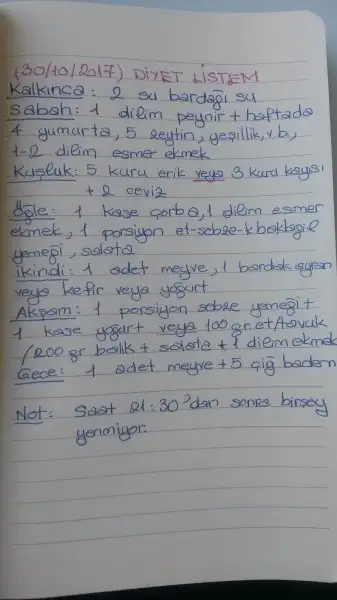 (30/10/2017) DİYET LİSTEM
Kalkınca : 2 su bardağı su
Sabah : 1 dilim peynir + haftada
4 yumurta, 5 zeytin, yeşillik, v.b,
1-2 dilim esmer ekmek
Kuşluk : 5 kuru erik veya 3 kuru kayısı
+ 2 ceviz
Öğle : 1 kase çorba, 1 dilim esmer
ekmek, 1 porsiyon et-sebze-k.baklagil
yemeği, salata
İkindi : 1 adet meyve, 1 bardak ayran
veya kefir veya yoğurt
Akşam : 1 porsiyon sebze yemeği +
1 kase yoğurt veya 100 gr et/tavuk
/200 gr balık + salata + 1 dilim ekmek
Gece : 1 adet meyve + 5 çiğ badem
Not : Saat 21:30'dan sonra birşey
yenmiyor.